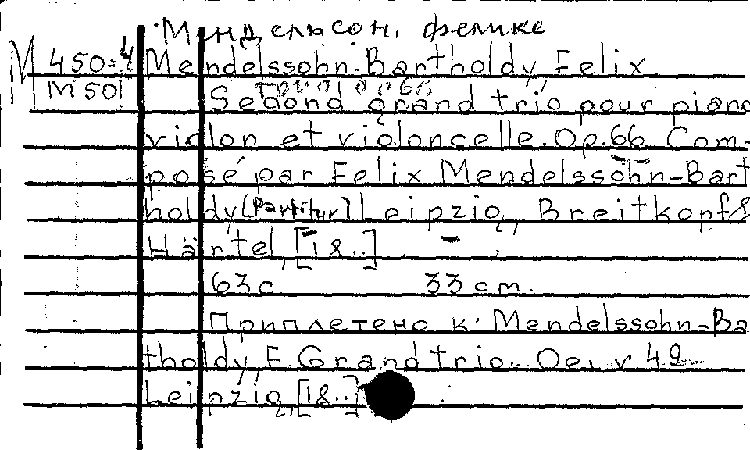 Мендельсон, Феликс
M 450-4 Mendelssohn-Bartholdy, Felix
M 501 Second grand trio pour piano
violon et violoncelle. Op. 66 Com-
posé par Felix Mendelssohn-Bart
holdy [Partitur] Leipzig, Breitkopf &
Härtel, [18..] -
63 с 33 cm.
Приплетено к: Mendelssohn-Ba
tholdy, F. Grand trio. Oeuv 49
Leipzig, [18..]